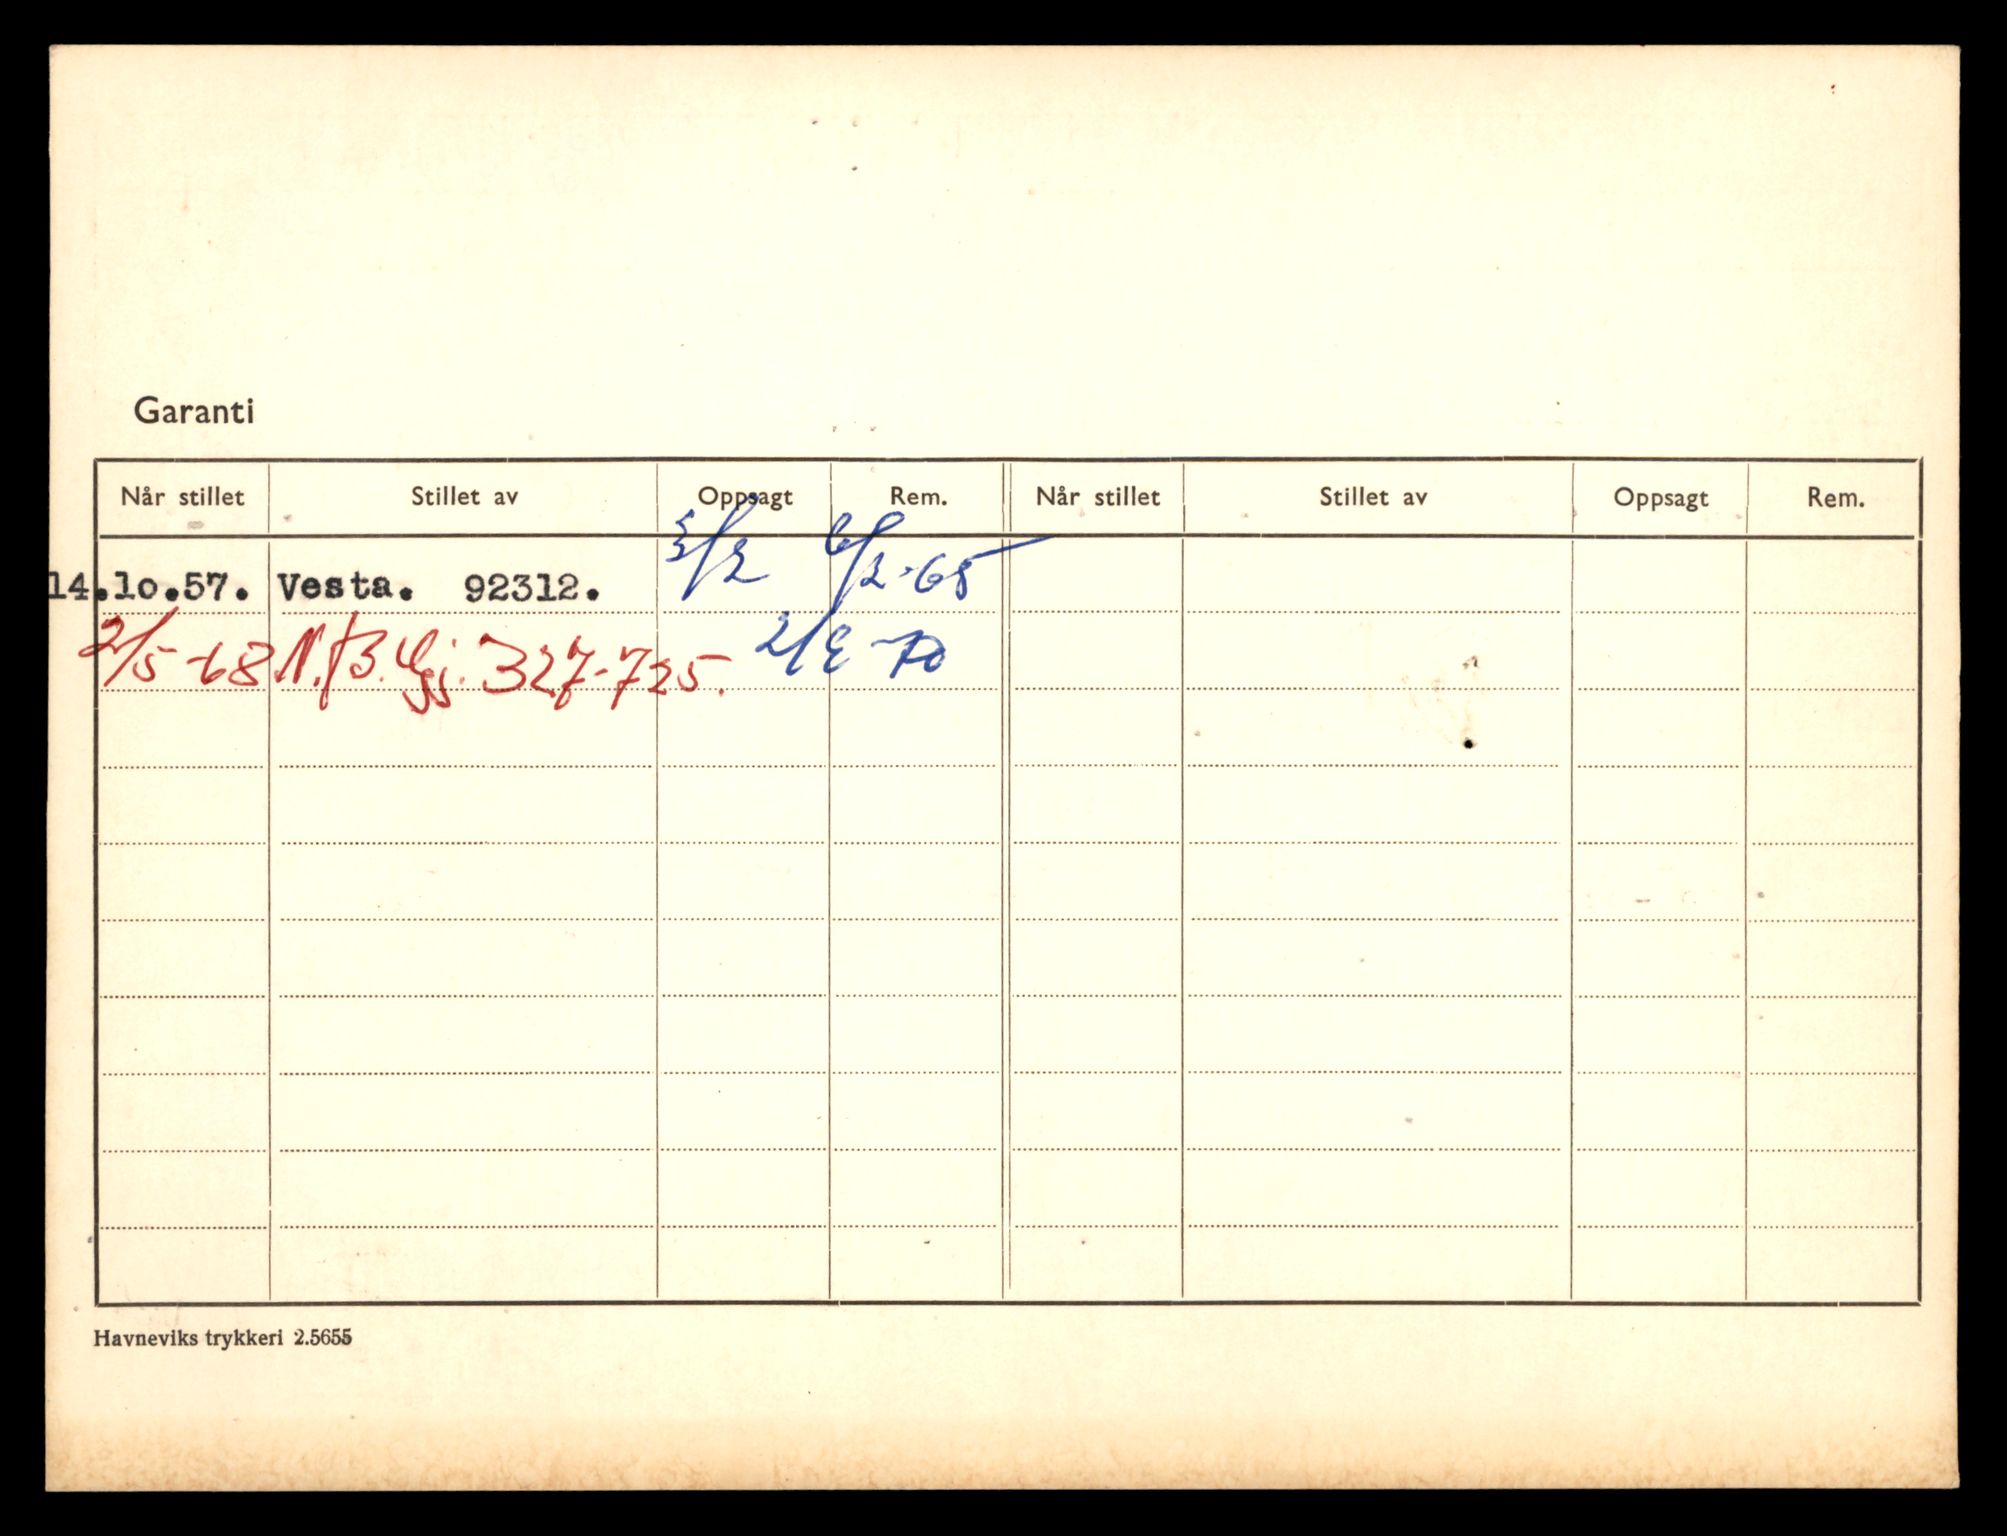 Garanti
Når stillet Stillet av Oppsagt Rem. Når stillet Stillet av Oppsagt Rem.
14.10.57. Vesta. 92312. 3/2 6/2-65
2/5-68 N.B. Ggj. 327-725. 2/2-70
Havneviks trykkeri 2.5655